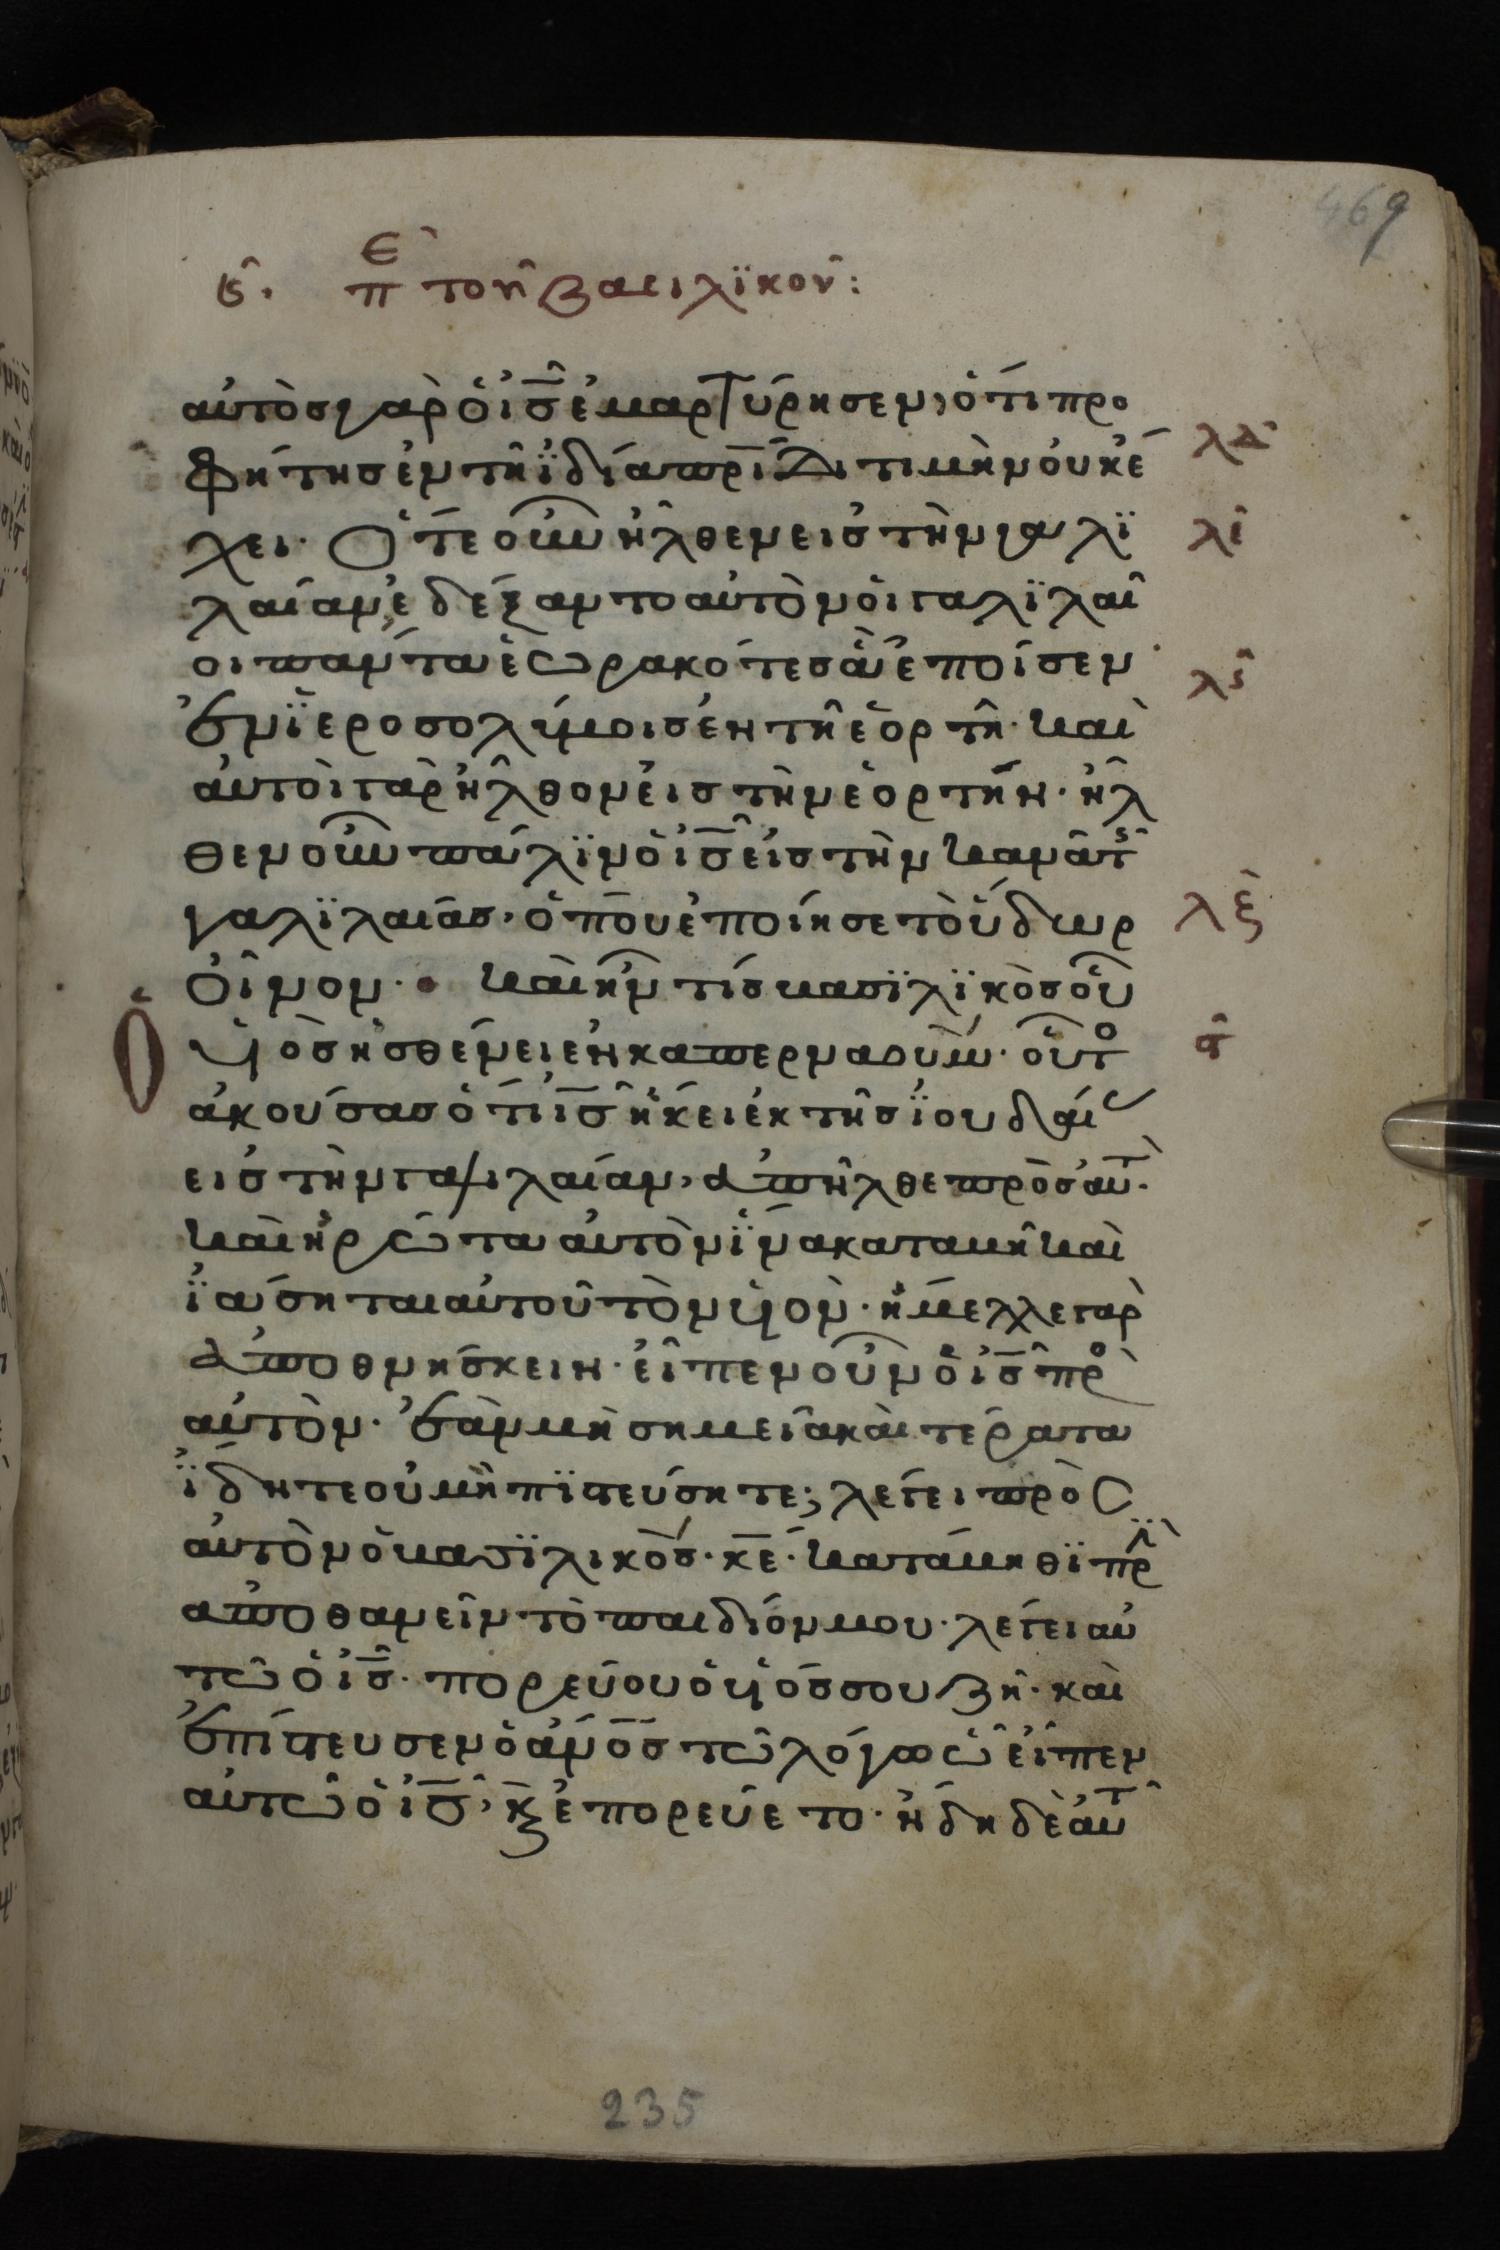 469
ϛ̑. πὲ τοῦ βασιλϊκοῦ:
αὐτὸσ γὰρ ὁ ἰ̅σ̅ ἐμαρτύρησεν, ὅτι προ
φήτησ ἐν τῆ ϊδία π̅ρ̅ί̅δι τιμὴν οὐκ έ
χει. Ὅτε οὖν ἦλθεν εισ τὴν γαλϊ
λαίαν, ἐδέξαντο αὐτὸν ὁι γαλϊλαῖ
οι πάντα ἑωρακότεσ ἃ ἐποίσεν
ἐν ϊεροσολύμοισ ἐν τῆ ἑορτῆ. καὶ
αὐτοὶ γὰρ ἦλθον ἐισ τὴν ἑορτήν. ἦλ
θεν οὖν πάλϊν ὁ ἰ̅σ̅ εἰσ τὴν κανᾶ τῆσ
γαλϊλαιάσ, ὅπου ἐποίησε τὸ ὕδωρ
οἶνον. καὶ ἦν τίσ βασϊλϊκὸσ οὗ
ὁ ὑϊὸσ ἠσθένει ἐν καπερναούμ. οὗτο
ἀκούσασ ὅτι ἰ̅σ̅ ἥκει ἐκ τῆσ ϊουδαί
εισ τὴν γαλιλαίαν, ἀπῆλθε πρὸσ ἀυτ.
καὶ ἠρώτα αὐτὸν ϊνα καταβῆ καὶ
ϊάσηται αὐτοῦ τὸν ὑϊόν. ἤμελλε γὰρ
ἀποθνήσκειν. εἶπεν οὖν ὁ ἰ̅σ̅ πρὸ
αὐτὸν. ἐὰν μὴ σημεῖα καὶ τέρατα
ϊδητε οὐ μὴ πϊστεύσητε; λέγει πρὸσ
αὐτὸν ὁ βασϊλικόσ. κ̅ε̅. κατάβηθϊ πρὶ
ἀποθανεῖν τὸ παιδίον μου. λέγει αὐ
τῶ ὁ ἰ̅σ̅. πορεύου ὁ ὑϊόσ σου ζῆ. καὶ
ἐπίστευσεν ὁ ἀ̅ν̅ο̅σ̅ τῶ λόγω ὧ εἶπεν
αὐτῶ ὁ ἰ̅σ̅, κ̀ ἐπορεύετο. ἤδη δὲ ἀυτ
λδ
λε
λϛ
λζ
235